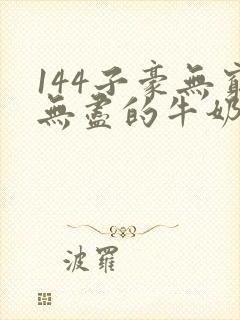 144子豪無窮
無盡的牛奶
波羅